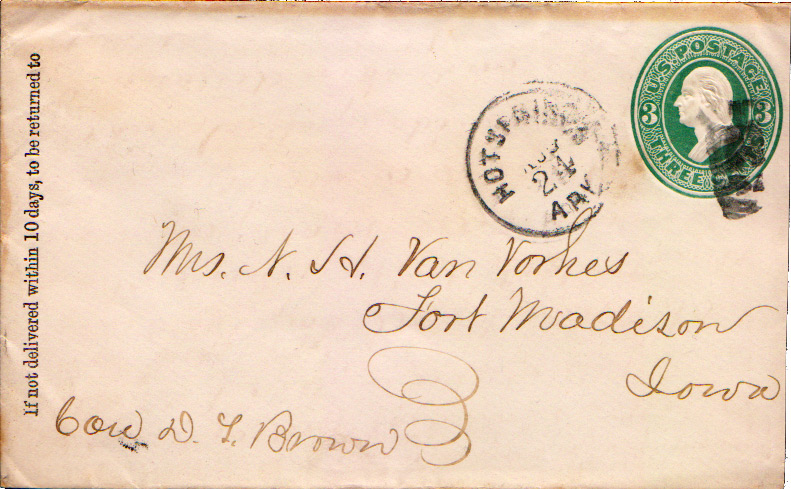 If not delivered within 10 days, to be returned to
HOT SPRINGS
AUG
24
ARK
U.S. POSTAGE
3 3
THREE CENTS
Mrs. N. H. Van Vorhes
Fort Madison
Iowa
Care D. F. Brown